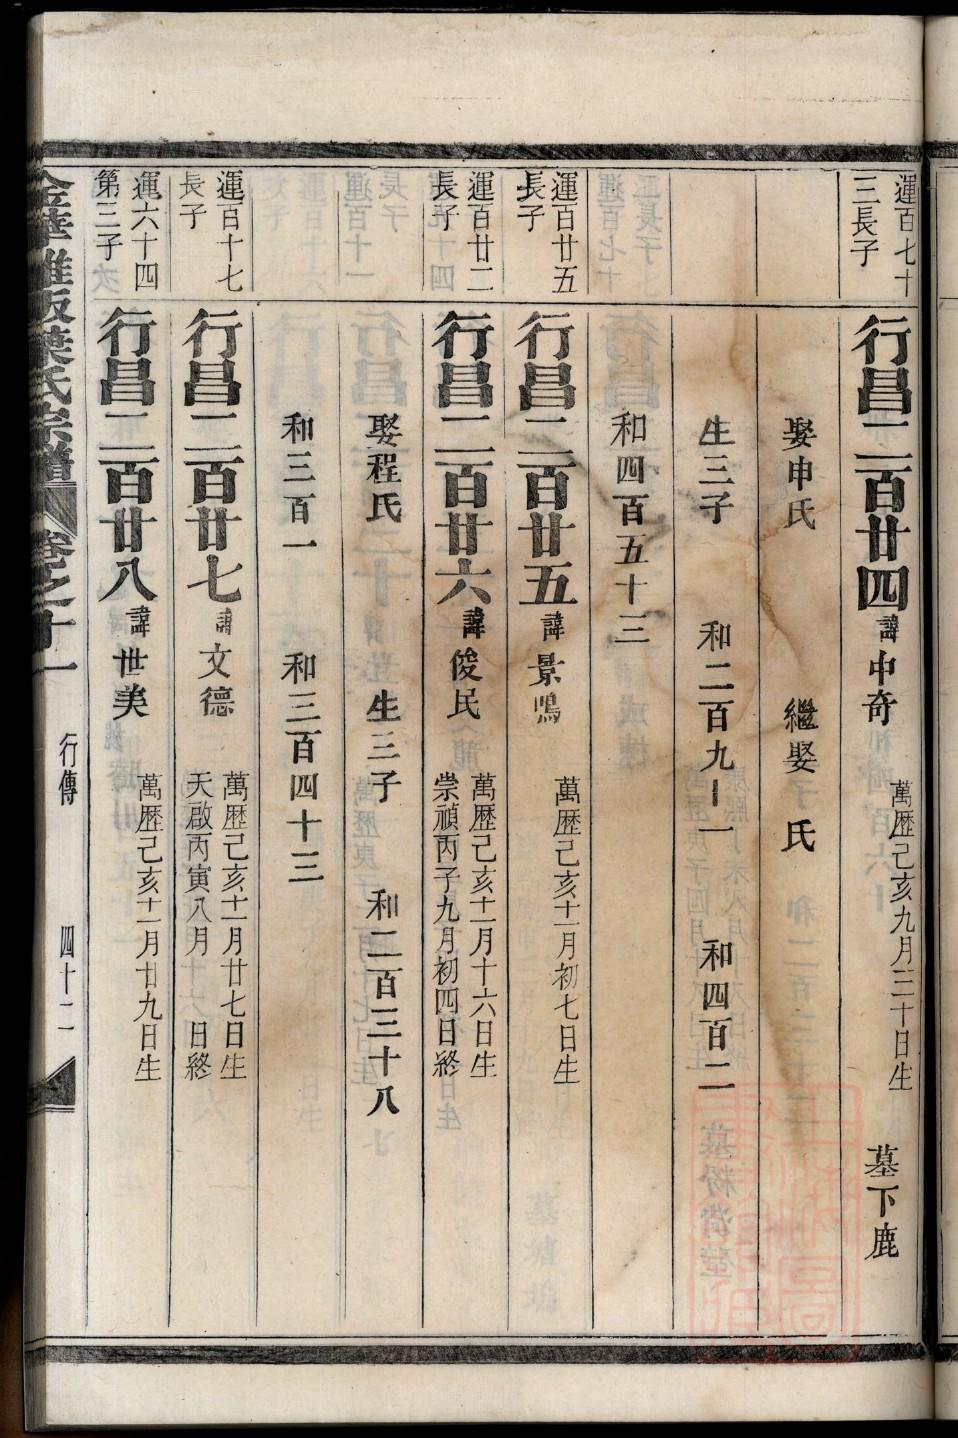 運百七十
三長子
行昌二百廿四 諱中奇 萬歴己亥九月三十日生 墓下鹿
娶申氏 繼娶 氏
生三子 和二百九十一 和四百二
和四百五十三
運百廿五
長子
行昌二百廿五 諱景鳴 萬歴己亥十一月初七日生
運百廿二
長子
行昌二百廿六 諱俊民 萬歴己亥十一月十六日生
崇禎丙子九月初四日終
娶程氏 生三子 和二百三十八
和三百一 和三百四十三
運百十七
長子
行昌二百廿七 諱文德 萬歴己亥十一月廿七日生
天啟丙寅八月 日終
運六十四
第三子
行昌二百廿八 諱世美 萬歴己亥十一月廿九日生
金華雅畈葉氏宗譜 卷之十一 行傳 四十二